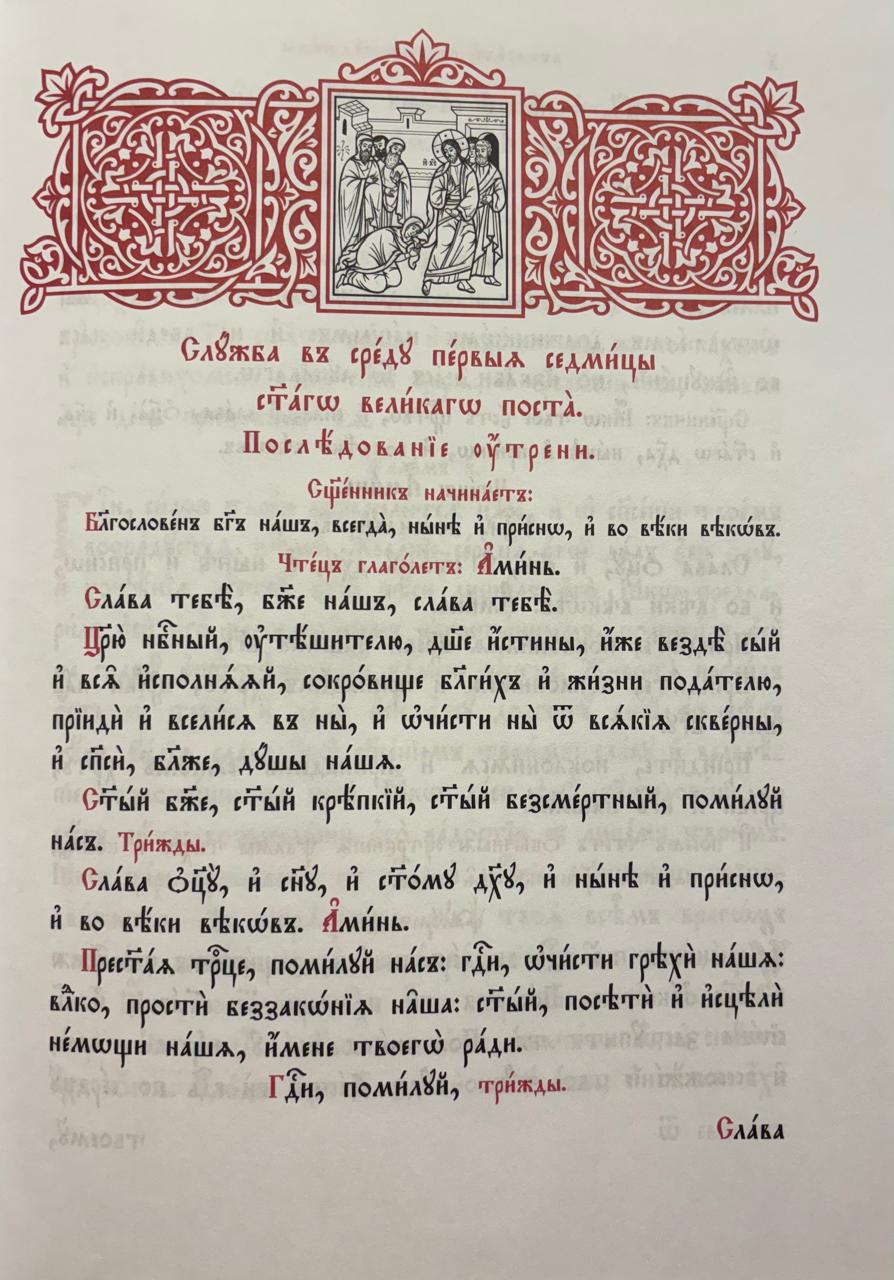 Слꙋ́жба въ сре́дꙋ пе́рвыѧ седми́цы
ст҃а́гѡ вели́кагѡ поста̀.
Послѣ́дованїе ᲂу҆́трени.
Сщ҃е́нникъ начина́етъ:
Блгⷭ҇ове́нъ бг҃ъ на́шъ, всегда̀, ны́нѣ и҆ при́снѡ, и҆ во вѣ́ки вѣкѡ́въ.
Чте́цъ глаго́летъ: А҆ми́нь.
Сла́ва тебѣ̀, бж҃е на́шъ, сла́ва тебѣ̀.
Цр҃ю̀ нбⷭ҇ный, ᲂу҆тѣ́шителю, дш҃е и҆́стины, и҆́же вездѣ̀ сы́й
и҆ всѧ̑ и҆сполнѧ́ѧй, сокро́вище бл҃ги́хъ и҆ жи́зни пода́телю,
прїидѝ и҆ всели́сѧ въ ны̀, и҆ ѡ҆чи́сти ны̀ ѿ всѧ́кїѧ скве́рны,
и҆ сп҃сѝ, бл҃же, дꙋ́шы на́шѧ.
Ст҃ы́й бж҃е, ст҃ы́й крѣ́пкїй, ст҃ы́й безсме́ртный, поми́лꙋй
на́съ. Три́жды.
Сла́ва ѻ҆ц҃ꙋ̀, и҆ сн҃ꙋ, и҆ ст҃о́мꙋ дх҃ꙋ, и҆ ны́нѣ и҆ при́снѡ,
и҆ во вѣ́ки вѣкѡ́въ. А҆ми́нь.
Прест҃а́ѧ трⷪ҇це, поми́лꙋй на́съ: гдⷭ҇и, ѡ҆чи́сти грѣхѝ на́шѧ:
влⷣко, простѝ беззакѡ́нїѧ на̑ша: ст҃ы́й, посѣтѝ и҆ и҆сцѣлѝ
не́мѡщи на́шѧ, и҆́мене твоегѡ̀ ра́ди.
Гдⷭ҇и, поми́лꙋй, три́жды.
Сла́ва